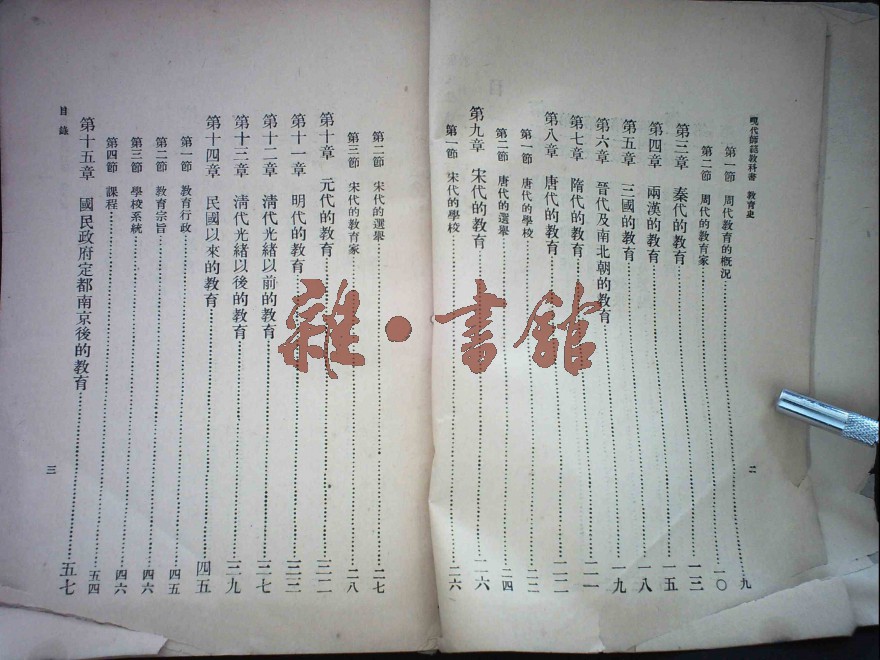 現代師範教科書 教育史
第一節 周代教育的概況…………九
第二節 周代的教育家…………一〇
第三章 秦代的教育…………一三
第四章 兩漢的教育…………一五
第五章 三國的教育…………一八
第六章 晉代及南北朝的教育…………一九
第七章 隋代的教育…………二一
第八章 唐代的教育…………二二
第一節 唐代的學校…………二二
第二節 唐代的選舉…………二四
第九章 宋代的教育…………二六
第一節 宋代的學校…………二六
二
第二節 宋代的選舉…………二七
第三節 宋代的教育家…………二八
第十章 元代的教育…………三二
第十一章 明代的教育…………三三
第十二章 清代光緒以前的教育…………三七
第十三章 清代光緒以後的教育…………三九
第十四章 民國以來的教育…………四五
第一節 教育行政…………四五
第二節 教育宗旨…………四六
第三節 學校系統…………四六
第四節 課程…………五四
第十五章 國民政府定都南京後的教育…………五七
目錄
三
雜·書館